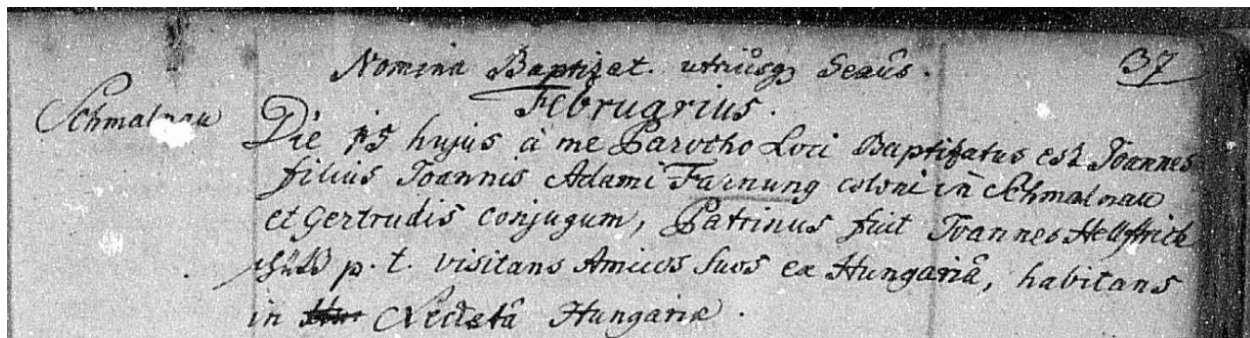 Nomina Baptizat. utriusq; Sexûs. 37
Februarius.
Schmalnau Die 15 hujus à me Parocho Loci Baptizatus est Joannes
filius Joannis Adami Farnung coloni in Schmalnau
et Gertrudis conjugum, Patrinus fuit Joannes Helffrich
p. t. visitans Amicos suos ex Hungariâ, habitans
in Hungariæ.